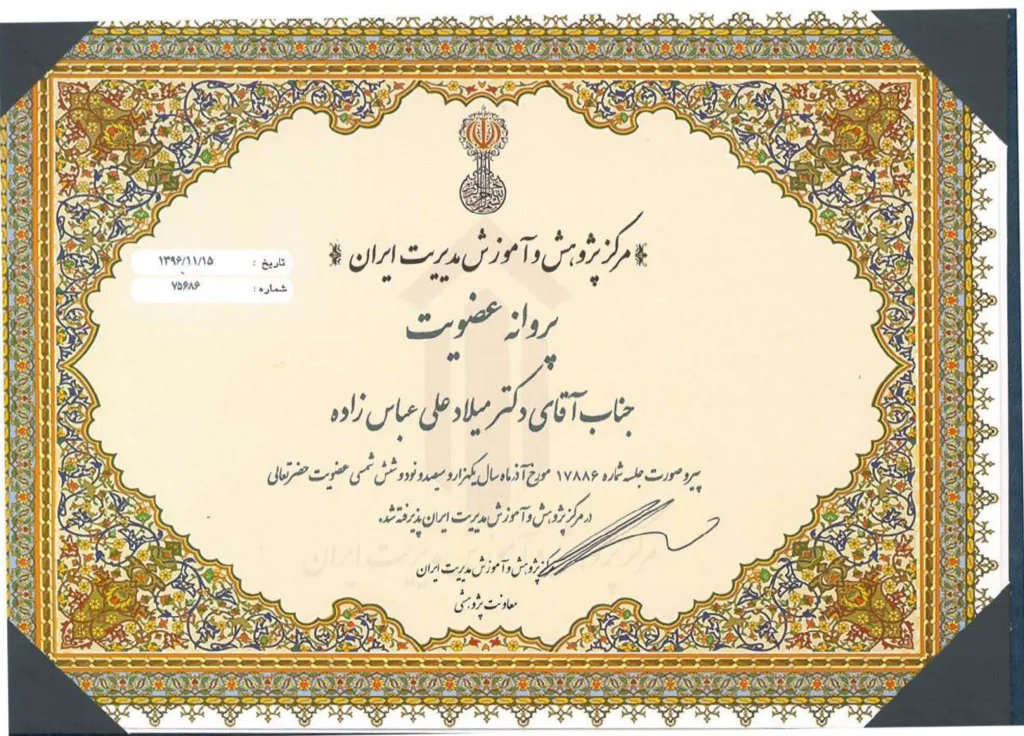 مرکز پژوهش و آموزش مدیریت ایران
تاریخ : ۱۳۹۶/۱۱/۱۵
شماره : ۷۵۶۸۶
پروانه عضویت
جناب آقای دکتر میلاد علی عباس زاده
پیرو صورت جلسه شماره ۱۷۸۸۶ مورخ آذرماه سال یکهزار و سیصد و نود و شش شمسی عضویت حضرتعالی
در مرکز پژوهش و آموزش مدیریت ایران پذیرفته شد.
مرکز پژوهش و آموزش مدیریت ایران
معاونت پژوهشی